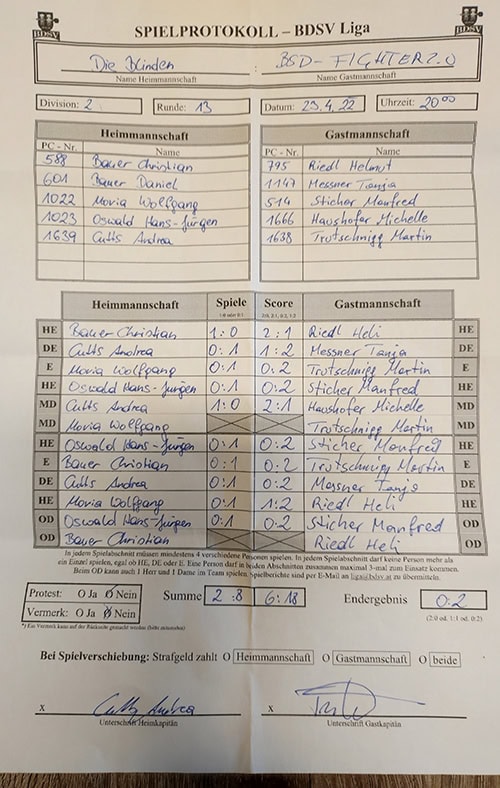 BDSV SPIELPROTOKOLL – BDSV Liga BDSV
Die Blinden : BSD - FIGHTER 2.0
Name Heimmannschaft Name Gastmannschaft
Division: 2 Runde: 13 Datum: 23.4.22 Uhrzeit: 20 00
Heimmannschaft Gastmannschaft
PC - Nr. Name PC - Nr. Name
588 Bauer Christian 795 Riedl Helmut
601 Bauer Daniel 1147 Messner Tanja
1022 Moria Wolfgang 514 Sticher Manfred
1023 Oswald Hans-Jürgen 1666 Haushofer Michelle
1639 Cutts Andrea 1638 Trutschnigg Martin
Heimmannschaft Spiele Score Gastmannschaft
1:0 oder 0:1 2:0, 2:1, 0:2, 1:2
HE Bauer Christian 1:0 2:1 Riedl Heli HE
DE Cutts Andrea 0:1 1:2 Messner Tanja DE
E Moria Wolfgang 0:1 0:2 Trutschnigg Martin E
HE Oswald Hans-Jürgen 0:1 0:2 Sticher Manfred HE
MD Cutts Andrea 1:0 2:1 Haushofer Michelle MD
MD Moria Wolfgang Trutschnigg Martin MD
HE Oswald Hans-Jürgen 0:1 0:2 Sticher Manfred HE
E Bauer Christian 0:1 0:2 Trutschnigg Martin E
DE Cutts Andrea 0:1 0:2 Messner Tanja DE
HE Moria Wolfgang 0:1 1:2 Riedl Heli HE
OD Oswald Hans-Jürgen 0:1 0:2 Sticher Manfred OD
OD Bauer Christian Riedl Heli OD
In jedem Spielabschnitt müssen mindestens 4 verschiedene Personen spielen. In jedem Spielabschnitt darf keine Person mehr als
ein Einzel spielen, egal ob HE, DE oder E. Eine Person darf in beiden Abschnitten zusammen maximal 3-mal zum Einsatz kommen.
Beim OD kann auch 1 Herr und 1 Dame im Team spielen. Spielberichte sind per E-Mail an liga@bdsv.at zu übermitteln.
Protest: O Ja O Nein Summe 2:8 6:18 Endergebnis 0:2
Vermerk: O Ja O Nein (2:0 od. 1:1 od. 0:2)
*) Ein Vermerk kann auf der Rückseite gemacht werden (bitte ankreuzen)
Bei Spielverschiebung: Strafgeld zahlt O Heimmannschaft O Gastmannschaft O beide
x Cutts Andrea x
Unterschrift Heimkapitän Unterschrift Gastkapitän